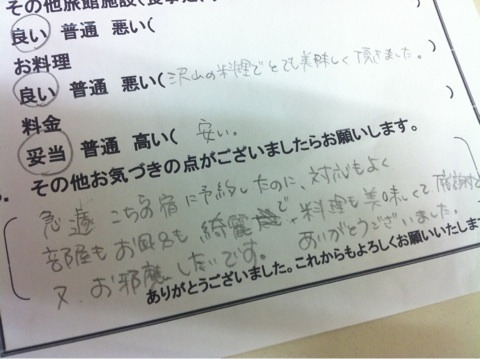 その他旅館施設(食事処
良い 普通 悪い( )
お料理
良い 普通 悪い( 沢山の料理でとても美味しく頂きました。 )
料金
妥当 普通 高い( 安い。 )
その他お気づきの点がございましたらお願いします。
急遽 こちらの宿に予約したのに、対応もよく
部屋もお風呂も綺麗で、料理も美味しくて
又、お邪魔したいです。 ありがとうございました。
ありがとうございました。これからもよろしくお願いいたします